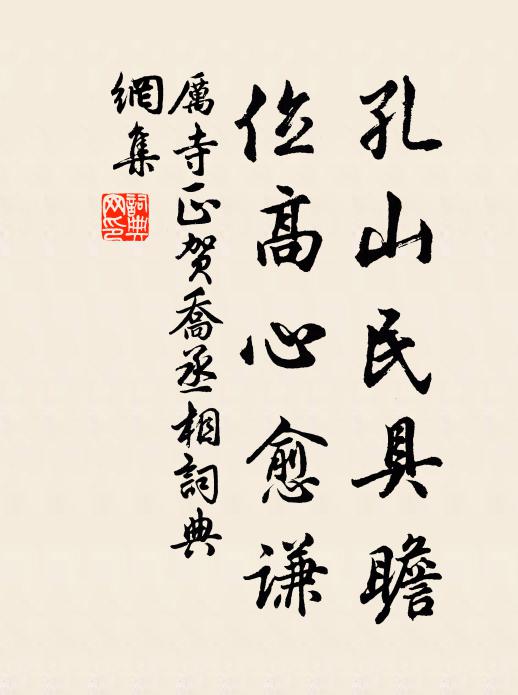 孔山民具瞻
位高心愈谦
厲寺正贺喬丞相詞典
網集
詞典
网印